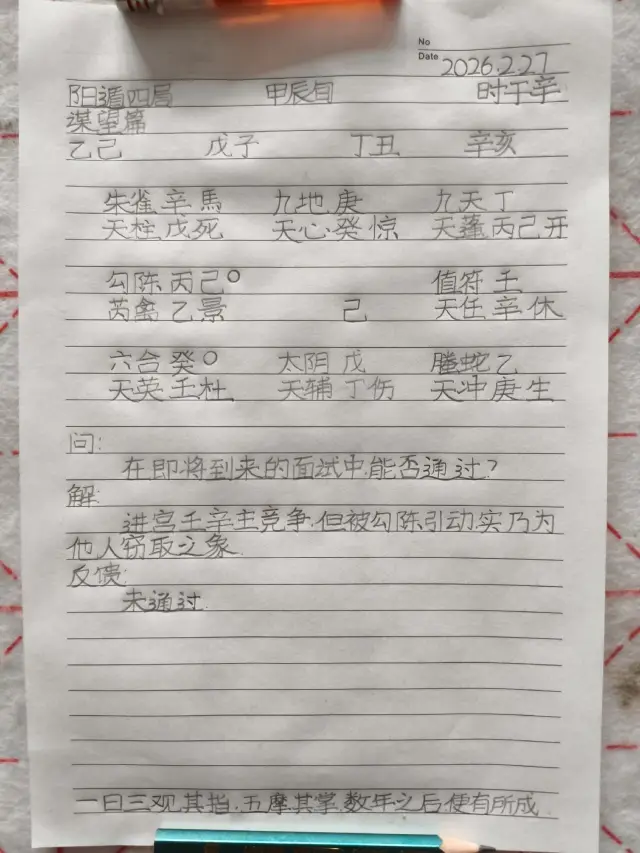 No
Date 2026.2.27
阳遁四局 甲辰旬 时干辛
谋望篇
乙己 戊子 丁丑 辛亥
朱雀辛馬 九地庚 九天丁
天柱戊死 天心癸惊 天蓬丙己开
勾陈丙己○ 值符壬
芮禽乙景 己 天任辛休
六合癸○ 太阴戊 螣蛇乙
天英壬杜 天辅丁伤 天冲庚生
问:
在即将到来的面试中,能否通过?
解:
进宫壬辛主竞争,但被勾陈引动,实乃为
他人窃取之象.
反馈:
未通过.
一日三观其指,五摩其掌,数年之后,便有所成.